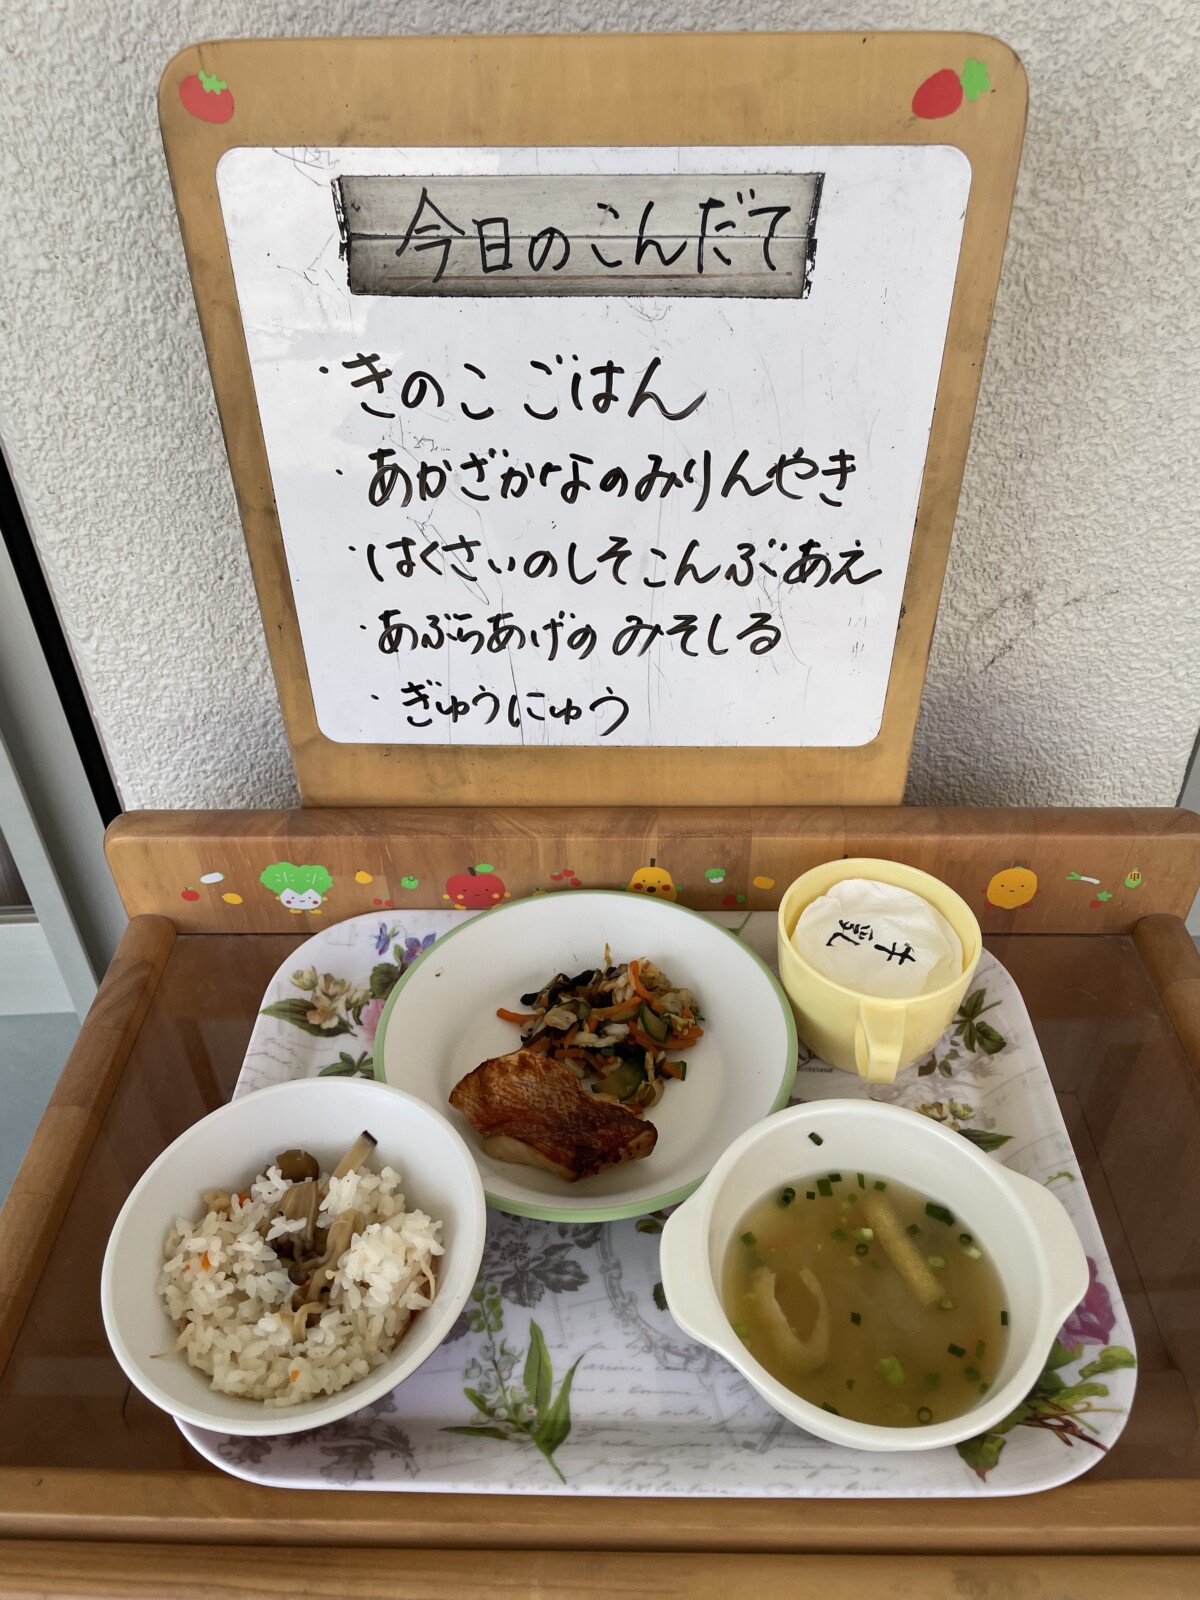 今日のこんだて
・きのこごはん
・あかざかなのみりんやき
・はくさいのしそこんぶあえ
・あぶらあげのみそしる
・ぎゅうにゅう